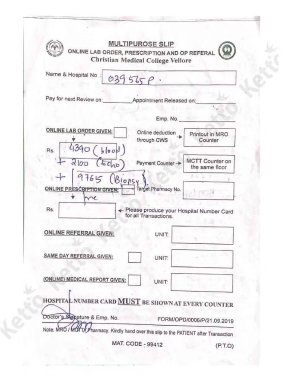 MULTIPUROSE SLIP
ONLINE LAB ORDER, PRESCRIPTION AND OP REFERAL
Christian Medical College Vellore
Name & Hospital No 039565P.
Pay for next Review on Appointment Released on:
Emp. No.
ONLINE LAB ORDER GIVEN: Online deduction through CWS → Printout in MRO Counter
Rs. 4390 (blood)
+ 2100 (Echo) Payment Counter → MCTT Counter on the same floor
+ 9765 (Biopsy)
ONLINE PRESCRIPTION GIVEN: Target Pharmacy No.
Rs. ← Please produce your Hospital Number Card for all Transactions.
ONLINE REFERRAL GIVEN: UNIT:
SAME DAY REFERRAL GIVEN: UNIT:
(ONLINE) MEDICAL REPORT GIVEN: UNIT:
HOSPITAL NUMBER CARD MUST BE SHOWN AT EVERY COUNTER
Doctor's Signature & Emp. No. FORM/OPD/0006/P/21.09.2019
Note: MRO / Pharmacy: Kindly hand over this slip to the PATIENT after Transaction
MAT. CODE - 99412 (P.T.O)
Ketto